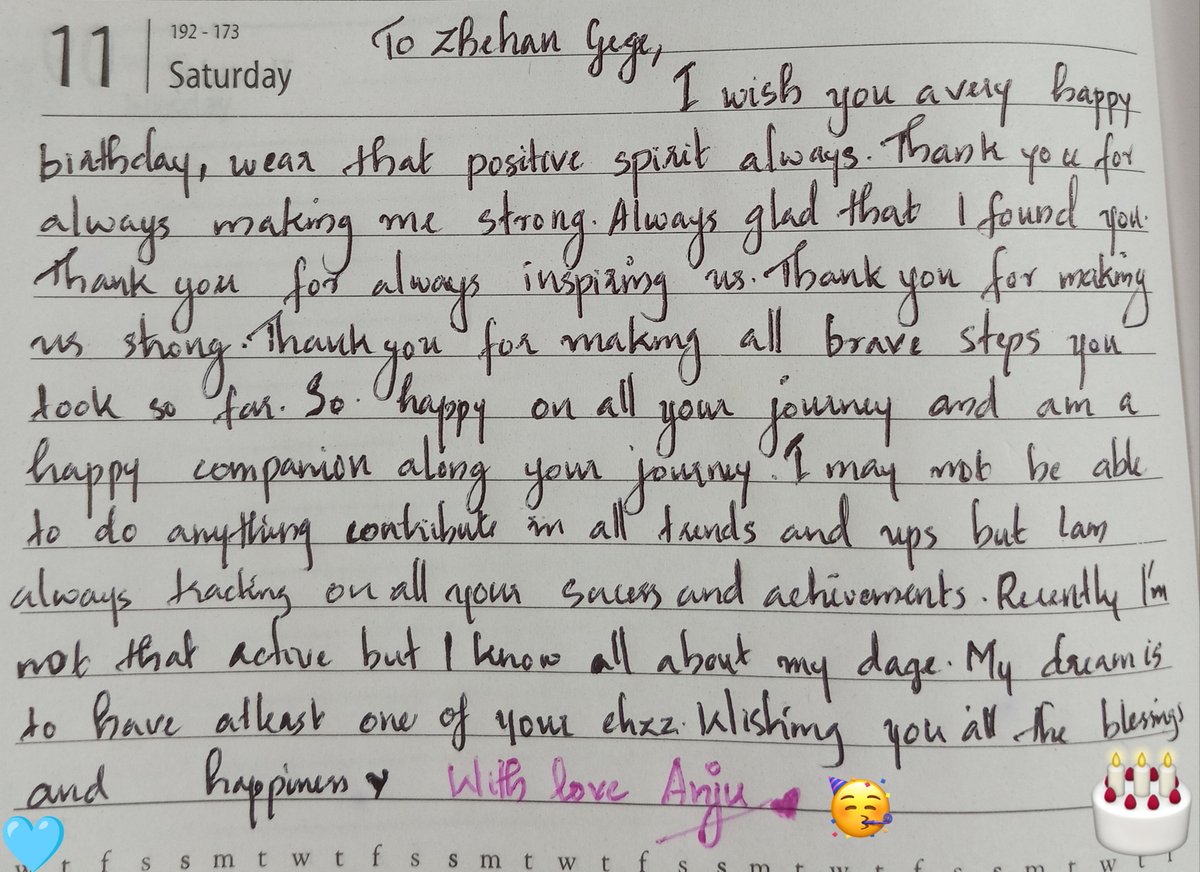 11
192 - 173
Saturday
To Zhehan Gege,
I wish you a very happy
birthday, wear that positive spirit always. Thank you for
always making me strong. Always glad that I found you.
Thank you for always inspiring us. Thank you for making
us strong. Thank you for making all brave steps you
took so far. So happy on all your journey and am a
happy companion along your journey. I may not be able
to do anything contribute in all trends and ups but I am
always tracking on all your sucess and achivements. Recently I'm
not that active but I know all about my dage. My dream is
to have atleast one of your ehxz. Wishing you all the blessings
and happiness
With love Anju
t f s s m t w t f s s m t w t f s s m t w t f s s m t w t